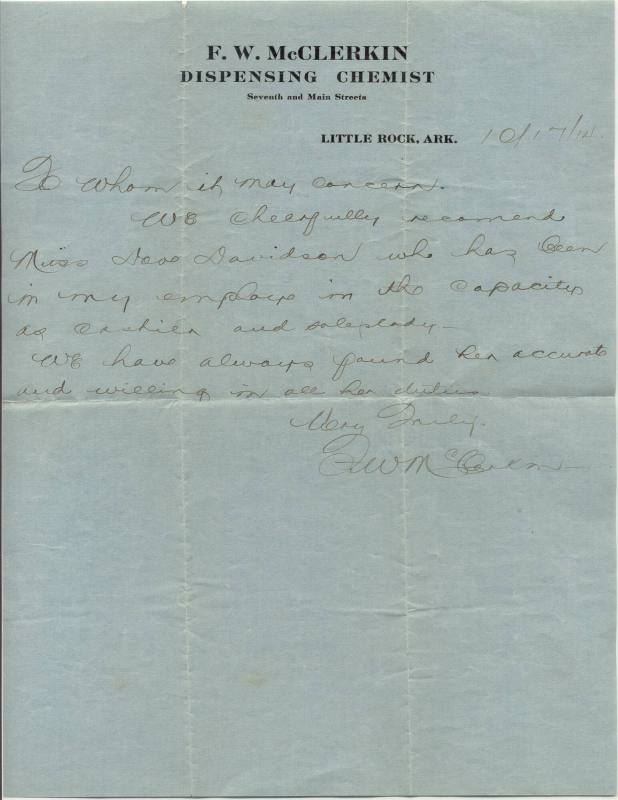 F. W. McCLERKIN
DISPENSING CHEMIST
Seventh and Main Streets
LITTLE ROCK, ARK. 10/17/14.
To Whom it may concern.
We cheerfully recomend
Miss Dove Davidson who has been
in my employe in the capacity
as cashier and saleslady—
We have always found her accurate
and willing in all her duties
Very Truly.
F W McClerkin